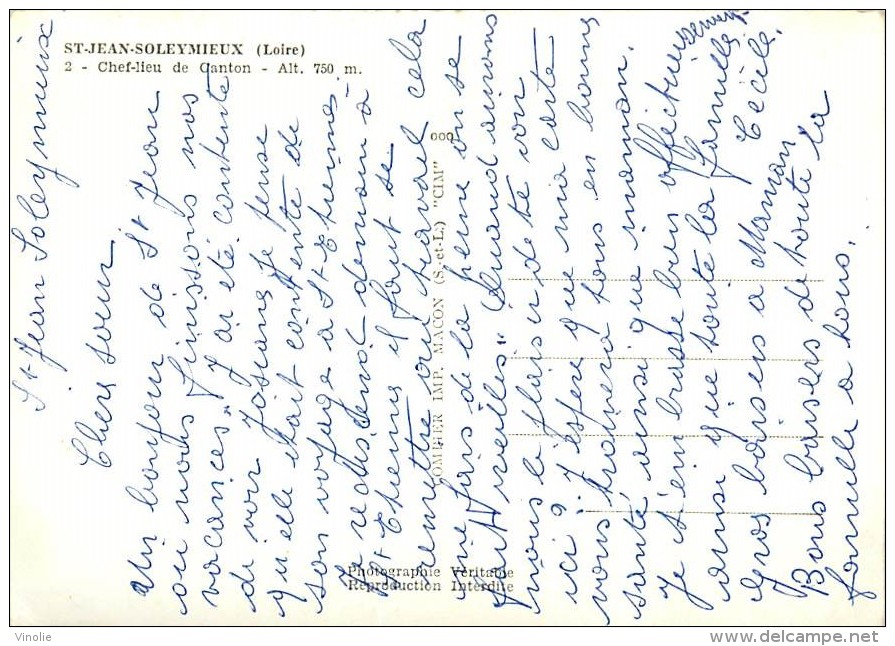 ST-JEAN-SOLEYMIEUX (Loire)
2 - Chef-lieu de Canton - Alt. 750 m.
St Jean Soleymieux
Chers soeur
Un bonjour de St Jean
ou nous finissons nos
vacances" J'ai été contente
de voir Josiane je pense
qu'elle était contente de
son voyage a St Etienne.
Je redescend demain a
St Etienne il faut se
remettre au travail cela
me fais de la peine on se
fait vieilles" Quand aurons
nous le plaisir de te voir
ici ? J'espère que ma carte
vous trouvera tous en bonne
santé ainsi que maman.
Je t'embrasse bien affectueusement
ainsi que toute la famille
Gros baisers a Maman Cécile.
Bons baisers de toute la
famille a tous.
000
COMBIER IMP. MACON (S.-et-L.) "CIM"
Photographie Véritable
Reproduction Interdite
Vinolie
www.delcampe.net